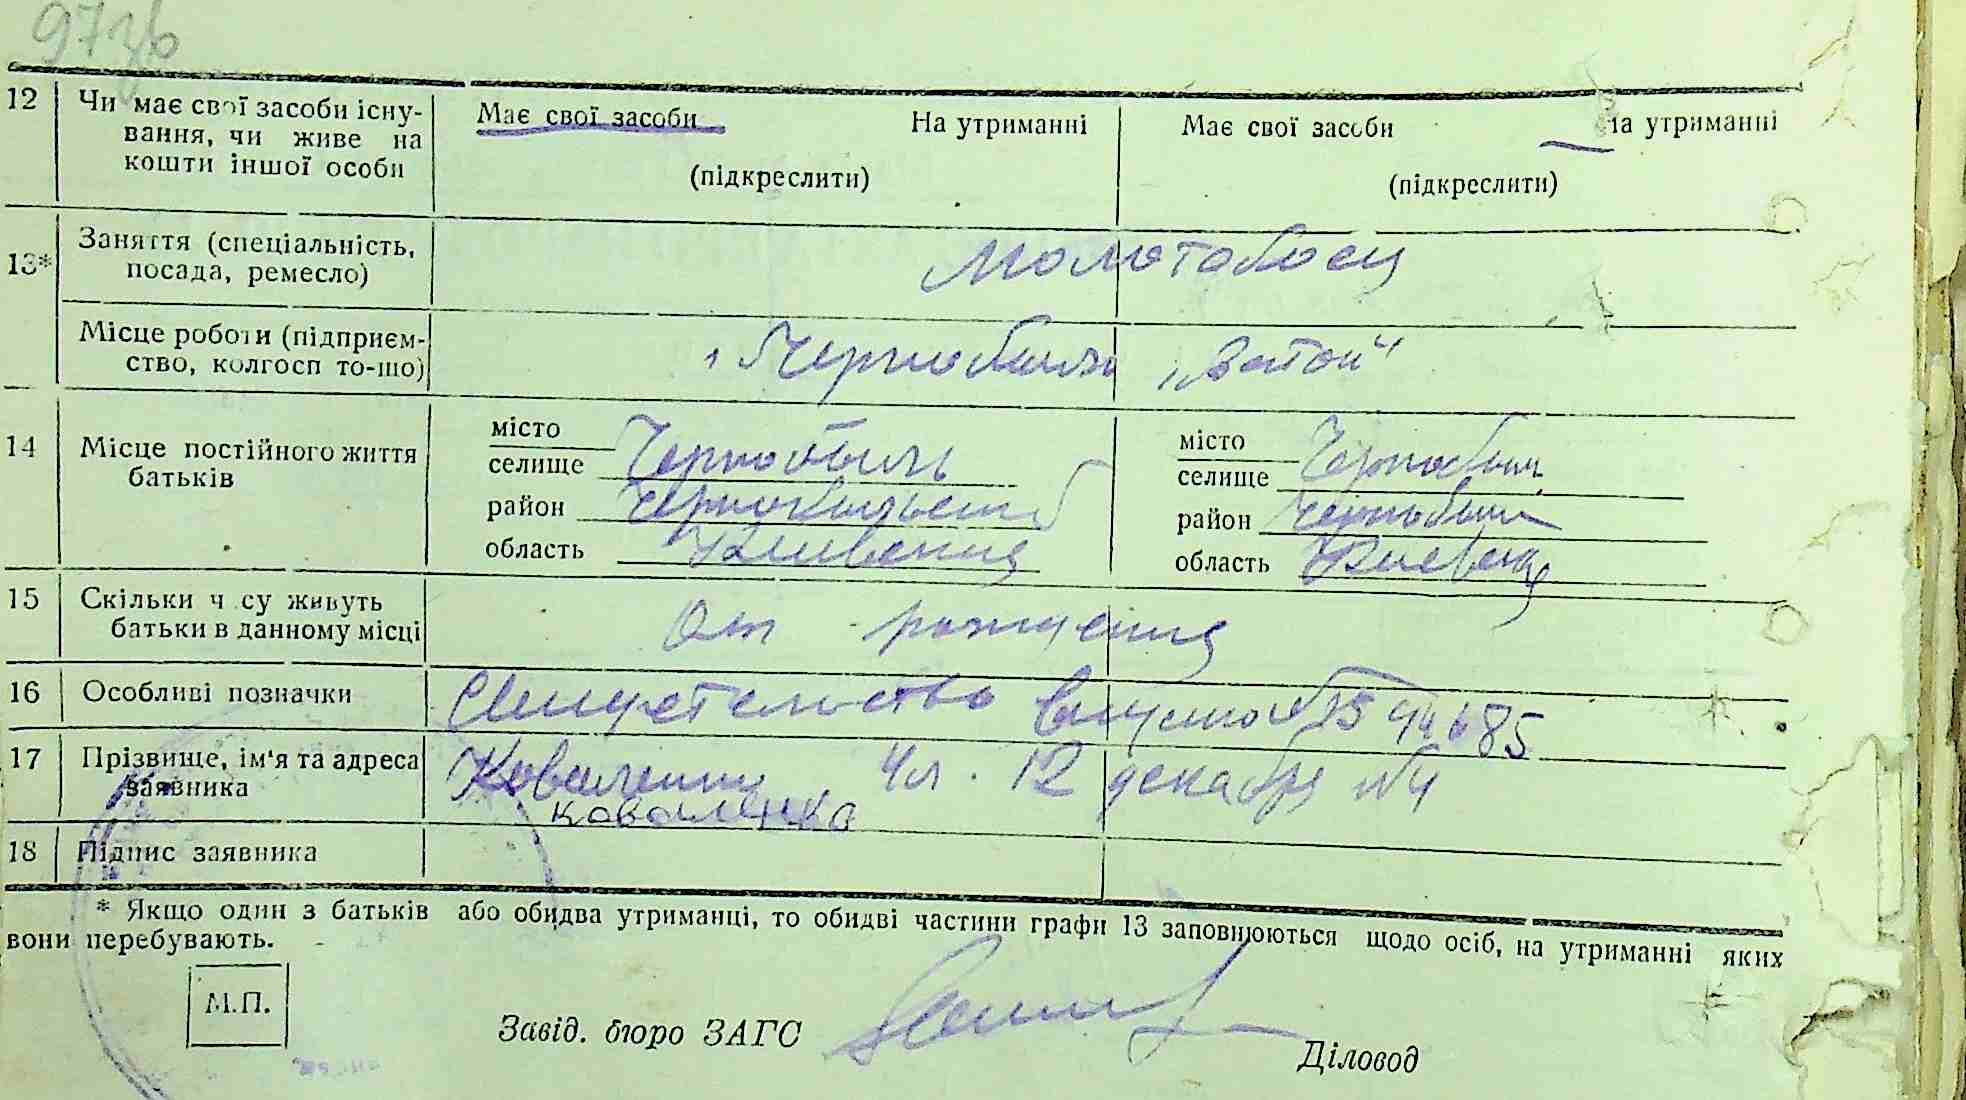 973в
12 Чи має свої засоби існу-
вання, чи живе на
кошти іншої особи
Має свої засоби На утриманні Має свої засоби На утриманні
(підкреслити) (підкреслити)
13* Заняття (спеціальність,
посада, ремесло)
Молотобоец
Місце роботи (підприєм-
ство, колгосп то-що)
Чернобыль
14 Місце постійного життя
батьків
місто
селище Чернобыль
район Чернобыльский
область Киевская
місто
селище Чернобыль
район Чернобыль
область Киевская
15 Скільки часу живуть
батьки в данному місці
От рождения
16 Особливі позначки Свидетельство
17 Прізвище, ім'я та адреса
заявника
Коваленко ул. 12 декабря №4
Коваленко
18 Підпис заявника
* Якщо один з батьків або обидва утриманці, то обидві частини графи 13 заповнюються щодо осіб, на утриманні яких
вони перебувають.
М.П.
Завід. бюро ЗАГС
Діловод